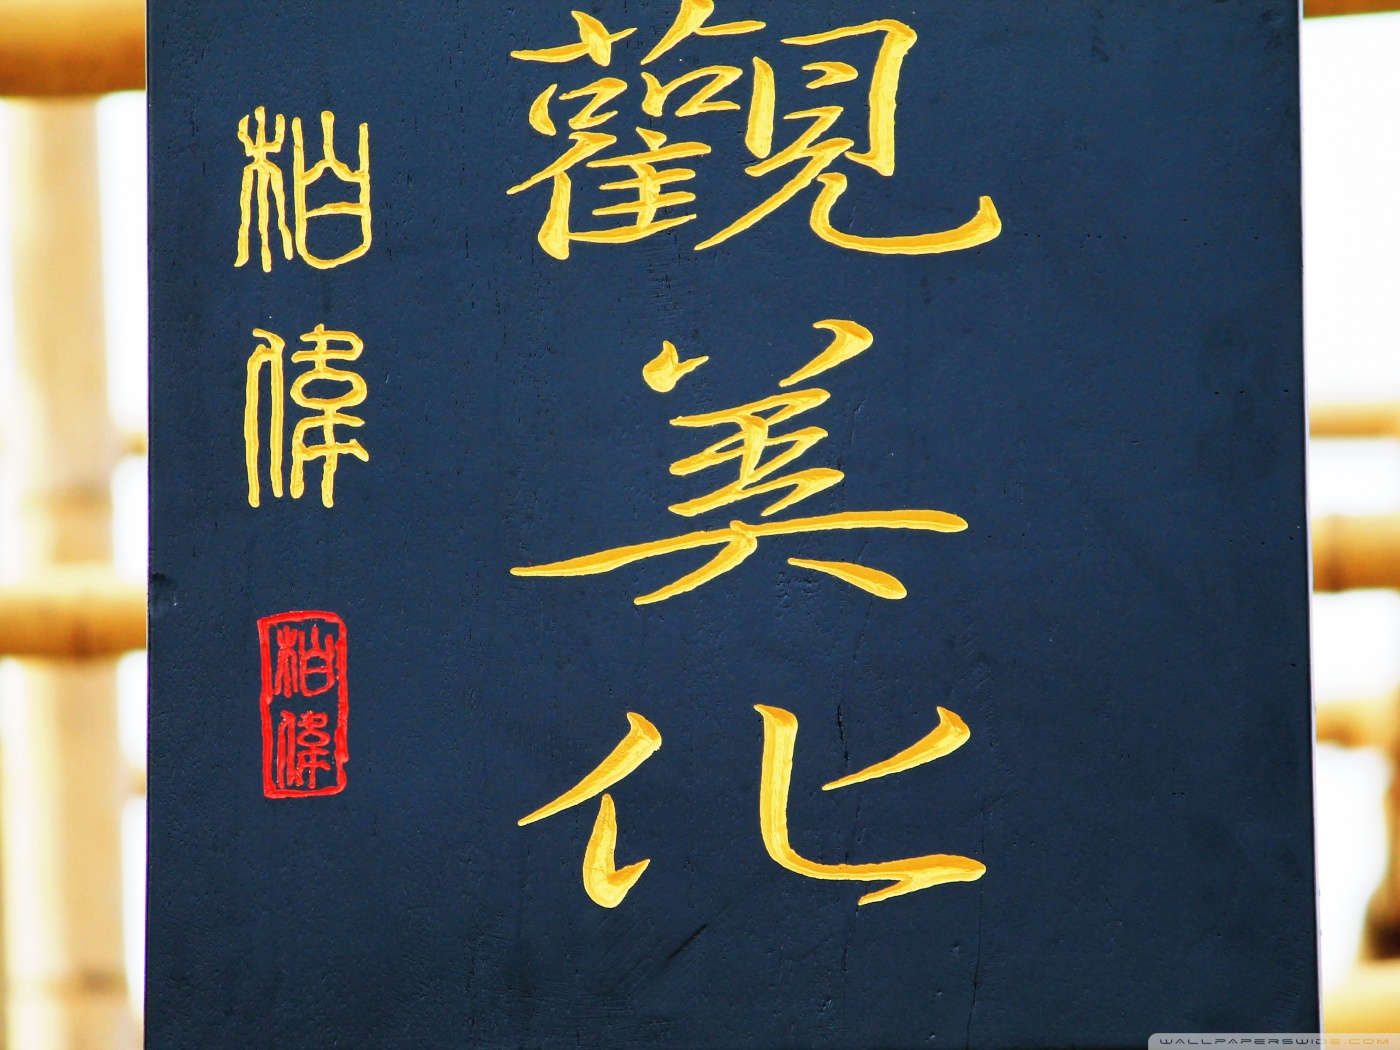 觀美化
柏偉
柏偉
WALLPAPERSWIDE.COM